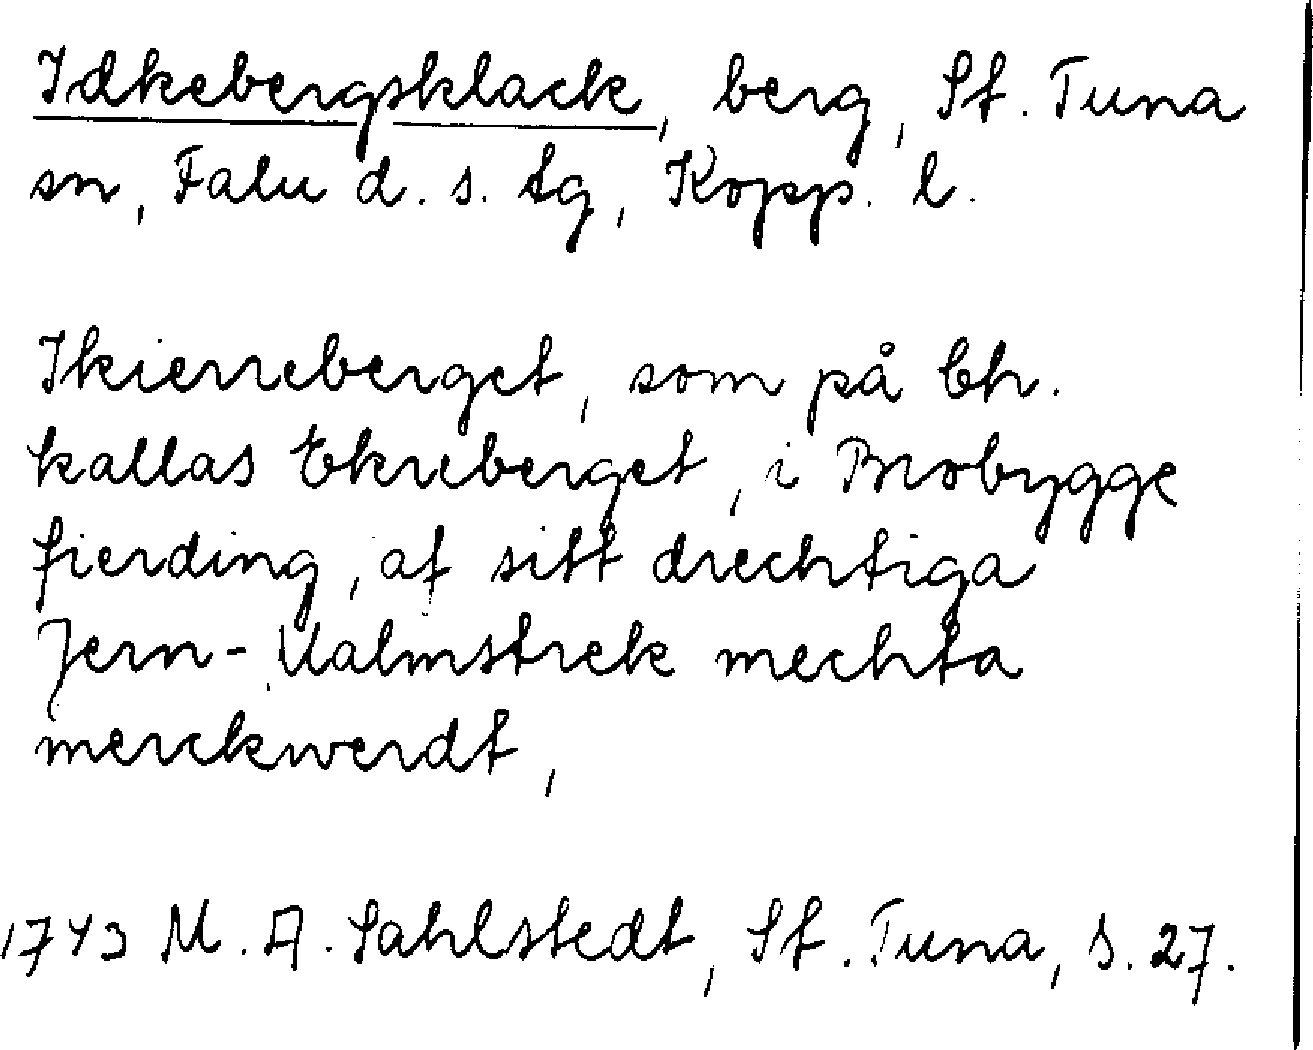 Idkebergsklack, berg, St. Tuna
sn, Falu d. s. tg, Kopp. l.
Ikierreberget, som på Ch.
kallas Ekreberget, i Brobygge
fierding, af sitt drechtiga
Jern-Malmstrek mechta
merckwerdt,
1743 M. A. Sahlstedt, St. Tuna, s. 27.